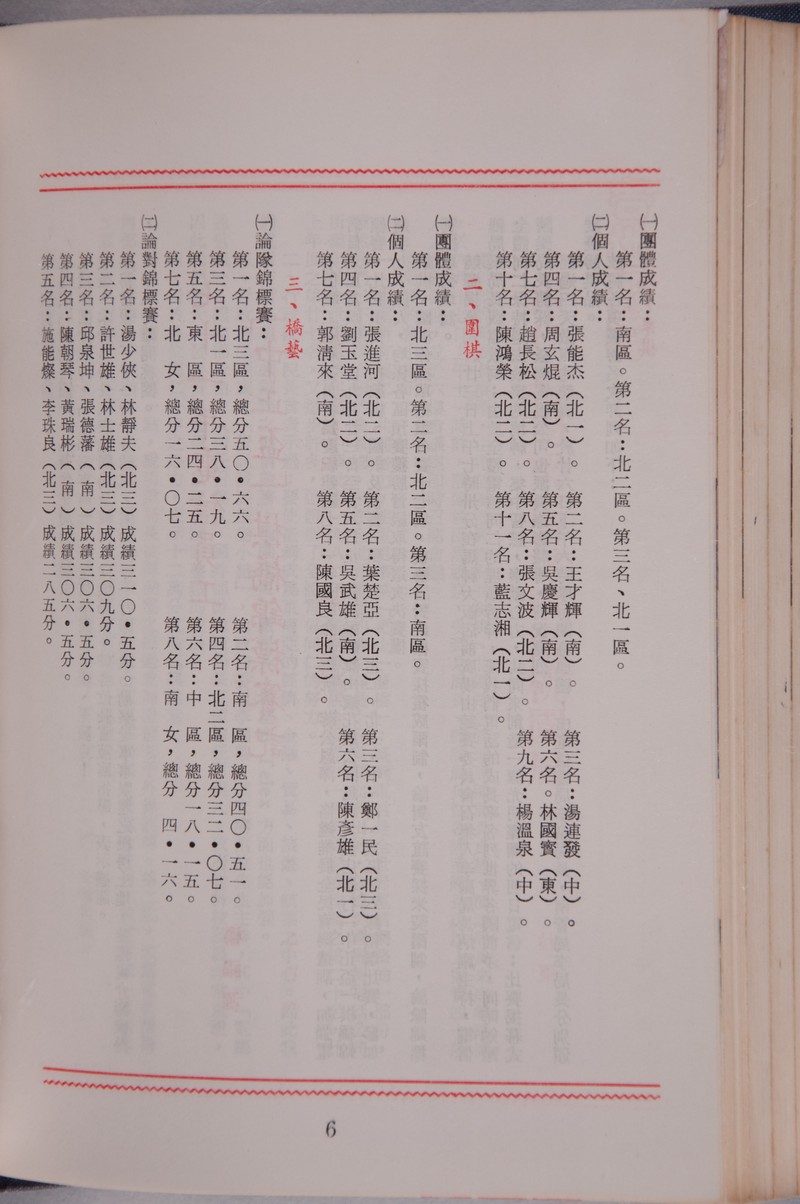 ㈠團體成績：
第一名：南區。第二名：北二區。第三名、北一區。
㈡個人成績：
第一名：張能杰（北一）。　第二名：王才輝（南）。　第三名：湯連發（中）。
第四名：周玄焜（南）。　第五名：吳慶輝（南）。　第六名。林國賓（東）。
第七名：趙長松（北二）。　第八名：張文波（北二）。　第九名：楊溫泉（中）。
第十名：陳鴻榮（北二）。　第十一名：藍志湘（北一）。
二、圍棋
㈠團體成績：
第一名：北三區。第二名：北二區。第三名：南區。
㈡個人成績：
第一名：張進河（北二）。　第二名：葉楚亞（北三）。　第三名：鄭一民（北三）。
第四名：劉玉堂（北二）。　第五名：吳武雄（南）。　第六名：陳彥雄（北一）。
第七名：郭清來（南）。　第八名：陳國良（北三）。
三、橋藝
㈠論隊錦標賽：
第一名：北三區，總分五〇•六六。　第二名：南　區，總分四〇•五一。
第三名：北一區，總分三八•一九。　第四名：北二區，總分三二•〇七。
第五名：東　區，總分二四•二五。　第六名：中　區，總分一八•一五。
第七名：北　女，總分一六•〇七。　第八名：南　女，總分　四•一六。
㈡論對錦標賽：
第一名：湯少俠、林靜夫（北三）成績三一〇•五分。
第二名：許世雄、林士雄（北三）成績三〇九分。
第三名：邱泉坤、張德藩（　南　）成績三〇六•五分。
第四名：陳朝琴、黃瑞彬（　南　）成績三〇六•五分。
第五名：施能燦、李珠良（北三）成績二八五分。
6